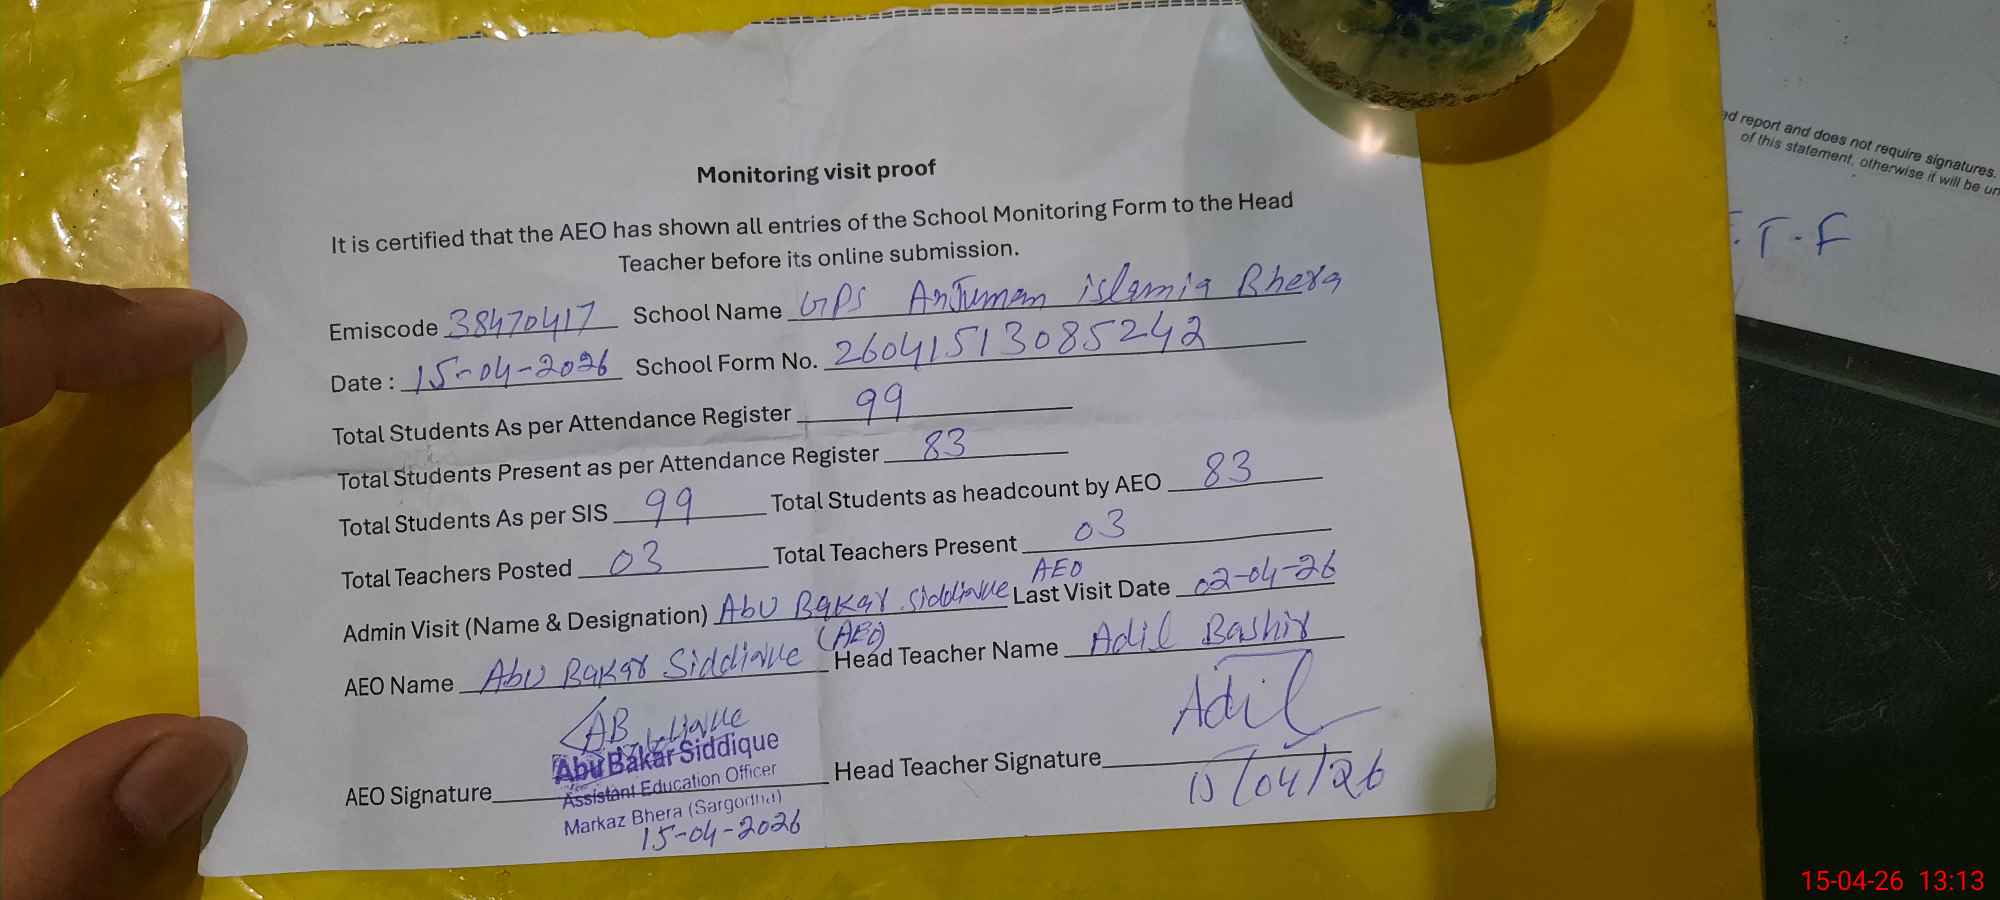 Monitoring visit proof
It is certified that the AEO has shown all entries of the School Monitoring Form to the Head
Teacher before its online submission.
Emiscode 38470417 School Name GPS Anjuman islamia Bhera
Date : 15-04-2026 School Form No. 26041513085242
Total Students As per Attendance Register 99
Total Students Present as per Attendance Register 83
Total Students As per SIS 99 Total Students as headcount by AEO 83
Total Teachers Posted 03 Total Teachers Present 03
Admin Visit (Name & Designation) Abu Bakar Siddique AEO Last Visit Date 02-04-26
AEO Name Abu Bakar Siddique (AEO) Head Teacher Name Adil Bashir
AEO Signature Head Teacher Signature Adil
Abu Bakar Siddique
Assistant Education Officer
Markaz Bhera (Sargodha)
15-04-2026
15/04/26
ed report and does not require signatures.
of this statement, otherwise it will be
T-F
15-04-26 13:13